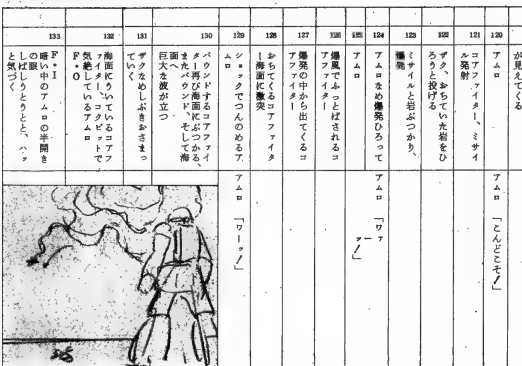 が見えてくる
120
アムロ
アムロ 「こんどこそ!」
121
コアファイター、ミサイ
ル発射
122
ザク、おちていた岩をひ
ろうと投げる
123
ミサイルと岩ぶつかり、
爆発
124
アムロなめ爆発ひろって
アムロ 「ワァ
ーッ!」
125
アムロ
126
爆風でふっとばされるコ
アファイター
127
爆発の中から出てくるコ
アファイター
128
おちてくるコアファイタ
ー海面に激突
129
ショックでつんのめるア
ムロ
アムロ 「ワーッ!」
130
バウンドするコアファイ
ター再び海面にぶつかる、
またバウンド、そして海
面へ
巨大な波が立つ
131
ザクなめしぶきおさまっ
ていく
132
海面にういているコアフ
ァイター、コクピットで
気絶しているアムロ
F・O
133
F・I
暗い中のアムロの半開き
の眼
しばしうとうとと、ハッ
と気づく